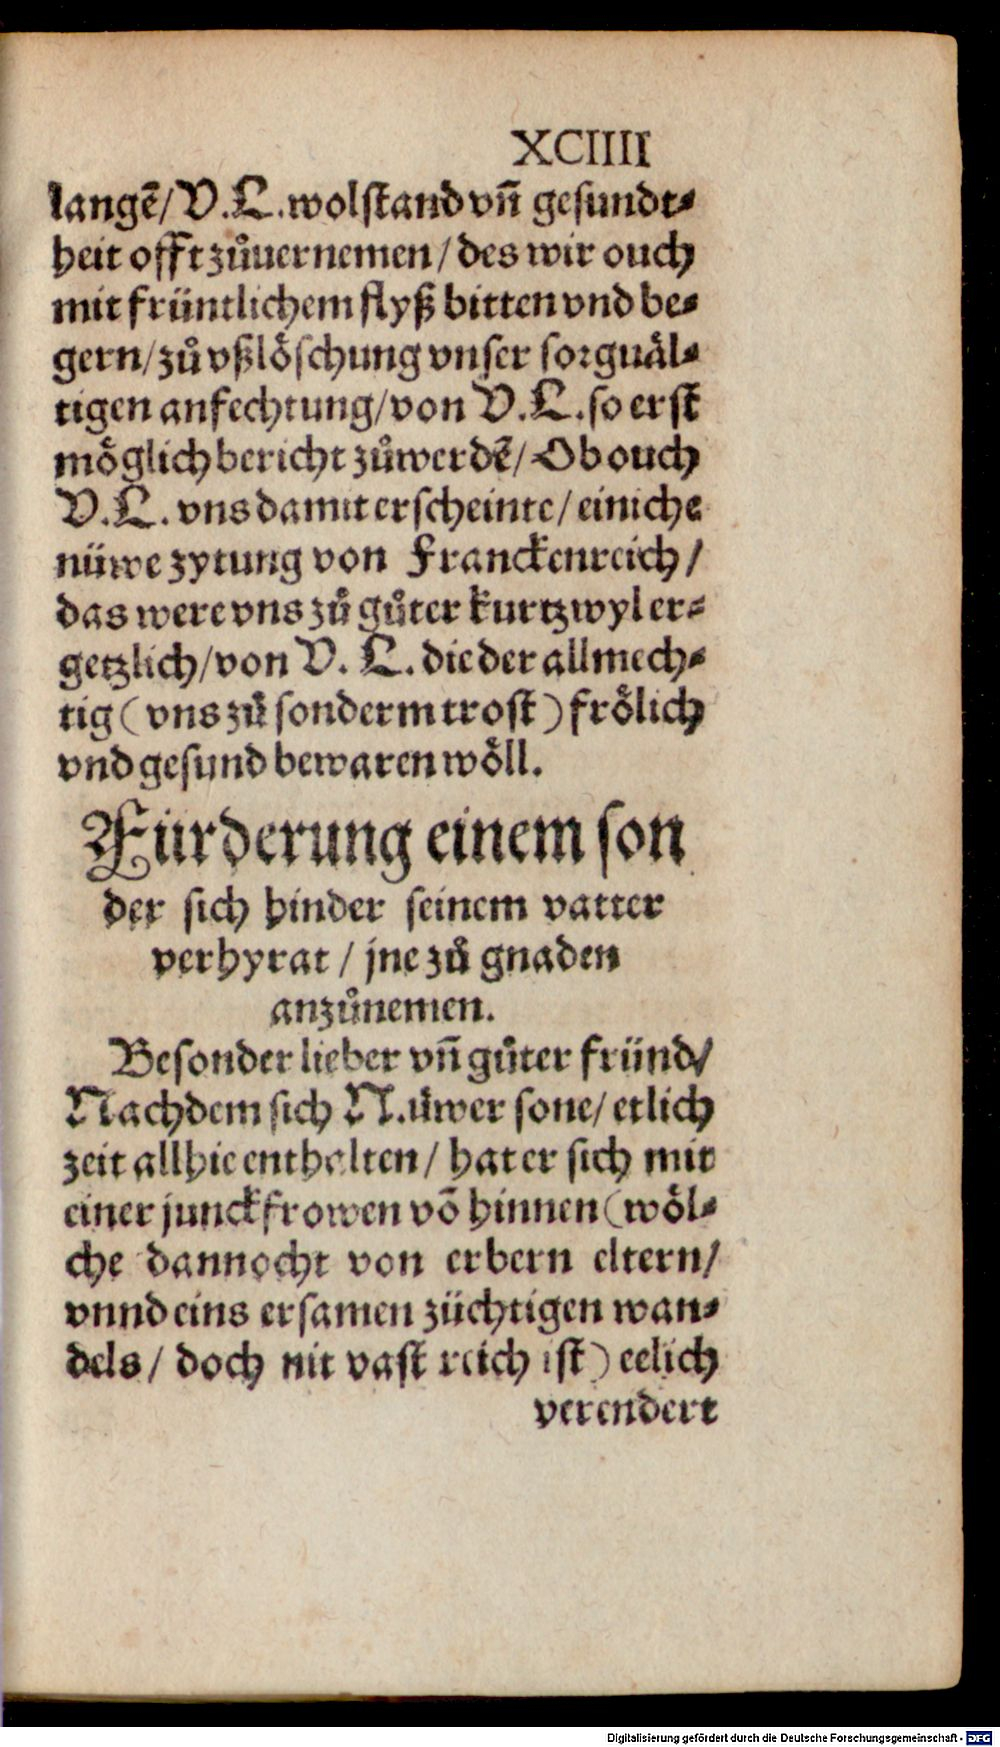 XCIIII
langē/ V.L. wolstand vñ gesundt⸗
heit offt zůuernemen/ des wir ouch
mit früntlichem flyß bitten vnd be⸗
gern/ zů vßlöschung vnser sorguäl⸗
tigen anfechtung/ von V.L. so erst
möglich bericht zůwerdē/ Ob ouch
V.L. vns damit erscheinte/ einiche
nüwe zytung von Franckenreich/
das were vns zů gůter kurtzwyl er⸗
getzlich/ von V. L. die der allmech⸗
tig (vns zů sonderm trost) frölich
vnd gesund bewaren wöll.
Fürderung einem son
der sich hinder seinem vatter
verhyrat/ jne zů gnaden
anzůnemen.
Besonder lieber vñ gůter fründ/
Nachdem sich N. üwer sone/ etlich
zeit allhie enthalten/ hat er sich mit
einer junckfrowen vō hinnen (wöl⸗
che dannocht von erbern eltern/
vnnd eins ersamen züchtigen wan⸗
dels/ doch nit vast reich ist) eelich
verendert
Digitalisierung gefördert durch die Deutsche Forschungsgemeinschaft - DFG